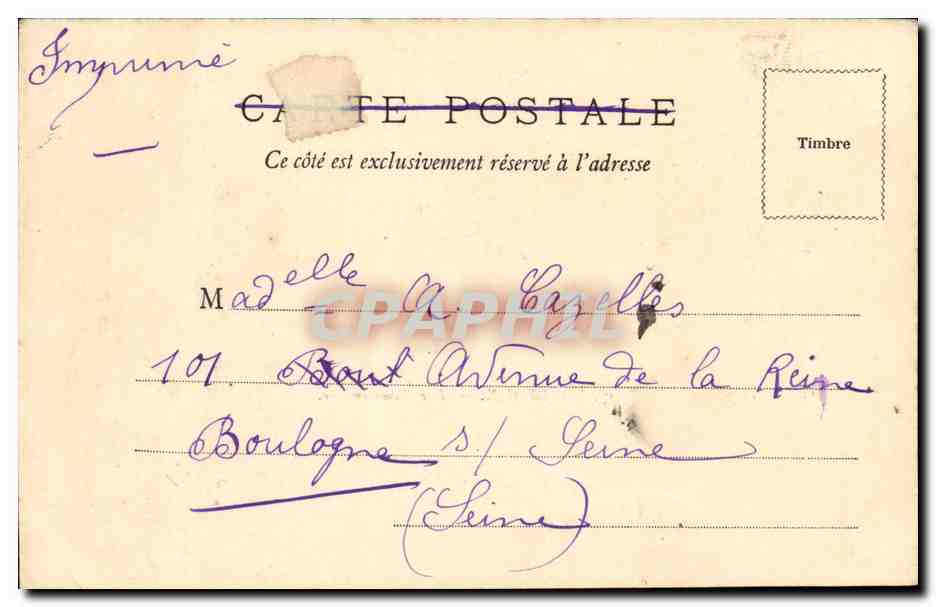 Imprimé
CARTE POSTALE
Ce côté est exclusivement réservé à l'adresse
Timbre
Madelle A. Cazelles
CPAPHIL
101. Bout Avenue de la Reine
Boulogne s/ Seine
(Seine)